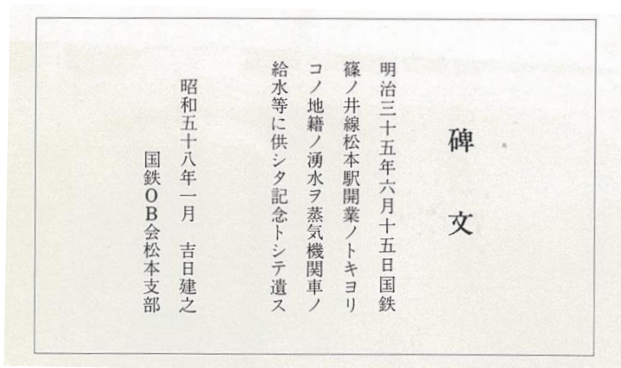 碑文
明治三十五年六月十五日国鉄
篠ノ井線松本駅開業ノトキヨリ
コノ地籍ノ湧水ヲ蒸気機関車ノ
給水等に供シタ記念トシテ遺ス
昭和五十八年一月　吉日建之
国鉄OB会松本支部